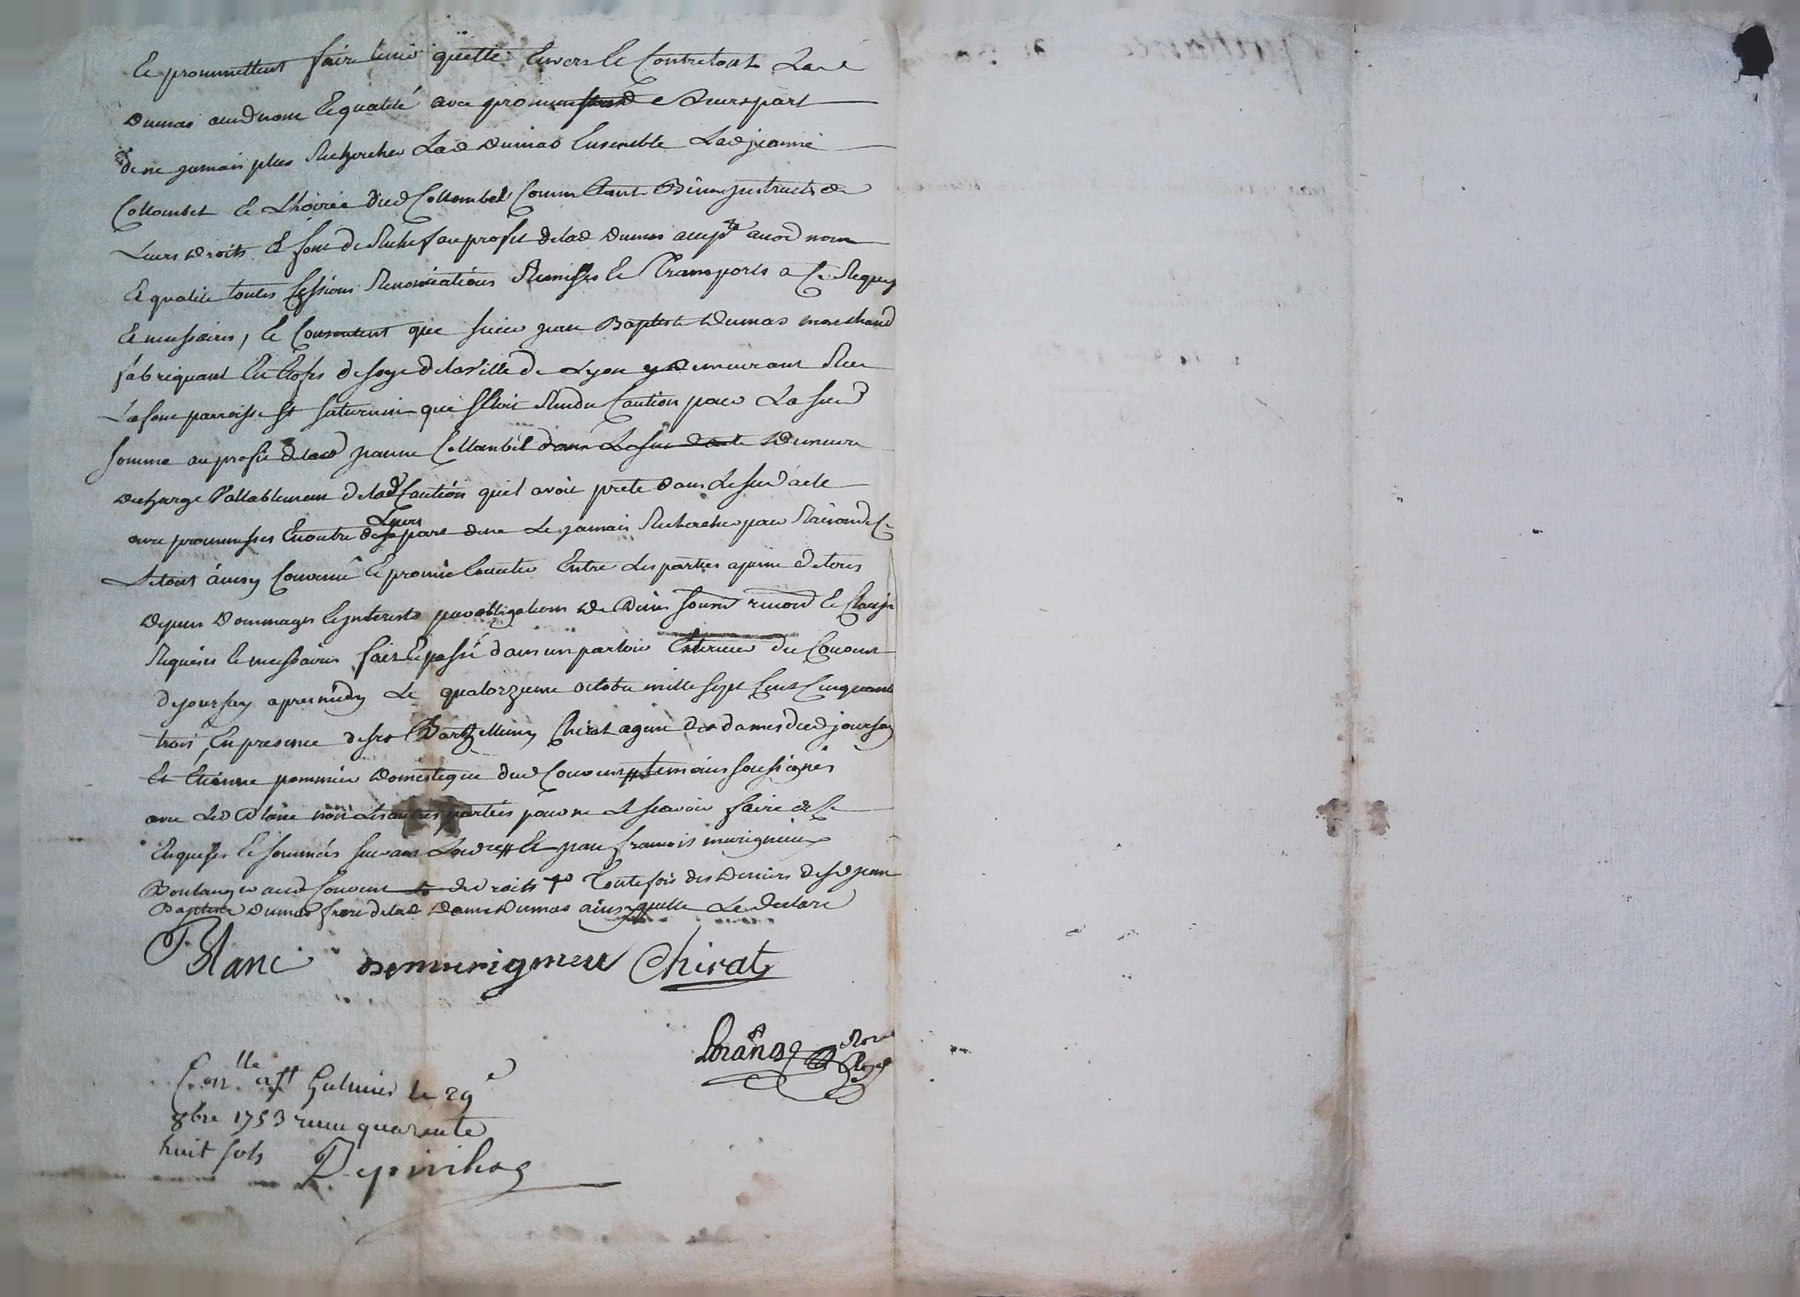 Et promettent faire tenir quitte Envers Et Contre tout Lad
Dumas aud nom Et qualité avec promesse de leurs part
de ne jamais plus Rechercher Lad Dumas Ensemble Lad jeanne
Collombet Et Lhoirie dud Collombet Comme Etant Bien jnstruits de
Leurs Droits Et font de Rechef au profit de lad Dumas accepte aud nom
Et qualité toutes Cessions Renonciations Remises Et Transports a Ce Requis
Et necessaires, Et Consentent que sieur jean Baptiste Dumas marchand
fabriquant En Etofes de soye de la Ville de Lyon y Demeurant Rue
Lafont parroisse St Saturnin qui sétoit Rendu Caution pour La sud
somme au profit de lad jeanne Collombet Demeure
dechargé Vallablement de lad Caution quil avoit preté dans Le sud acte
avec promesses En outre de Leurs part de ne Le jamais Rechercher pour Raison de Ce
Le tout ainsy Convenu Et promis Executer Entre Les parties a peine de tous
Depens Dommages Et jnterests par obligations de Biens soumis renon Et Clauses
Requises Et necessaires fait Et passé dans un parloir Exterieur du Couvent
de joursey apres midy Le quatorzieme octobre mille sept Cent Cinquante
trois En presence de sr Barthellemy Chirat agent des dames dud joursey
Et Etienne pommier Domestique dud Couvent temoins soussignés
avec Led Blanc non Les autres parties pour ne Le scavoir faire de Ce
Enquises Et sommées suivant Lord Et jean francois murigneux
Boulanger aud Couvent des droits Toutefois des Deniers de sr jean
Baptiste Dumas frere de lad Dame Dumas ainsy quelle Le declare
Blanc Demurigneux Chirat
Con.lle a St Galmier le 29e
8bre 1753 recu quarente
huit sols